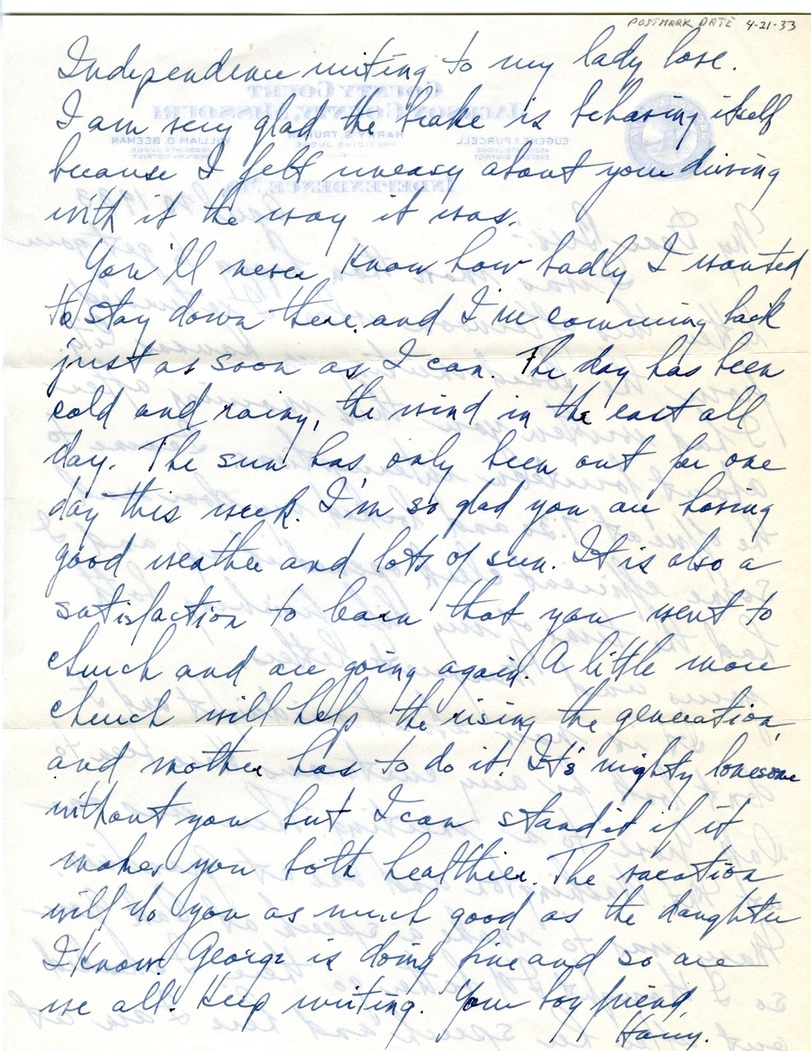 POSTMARK DATE 4-21-33
Independence writing to my lady love.
I am very glad the brake is behaving itself
because I felt uneasy about your driving
with it the way it was.
You'll never know how badly I wanted
to stay down there and I'm comming back
just as soon as I can. The day has been
cold and rainy, the wind in the east all
day. The sun has only been out for one
day this week. I'm so glad you are having
good weather and lots of sun. It is also a
satisfaction to learn that you went to
church and are going again. A little more
church will help the rising the generation
and mother has to do it. It's mighty lonesome
without you but I can stand it if it
makes you both healthier. The vacation
will do you as much good as the daughter
I know. George is doing fine and so are
we all. Keep writing. Your boy friend,
Harry.